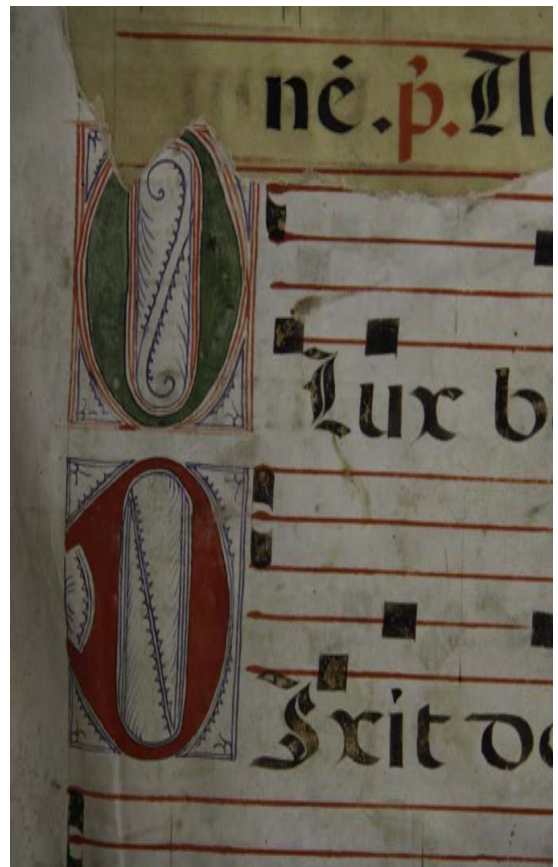 né. p̉.
O Lux b
DIxit do